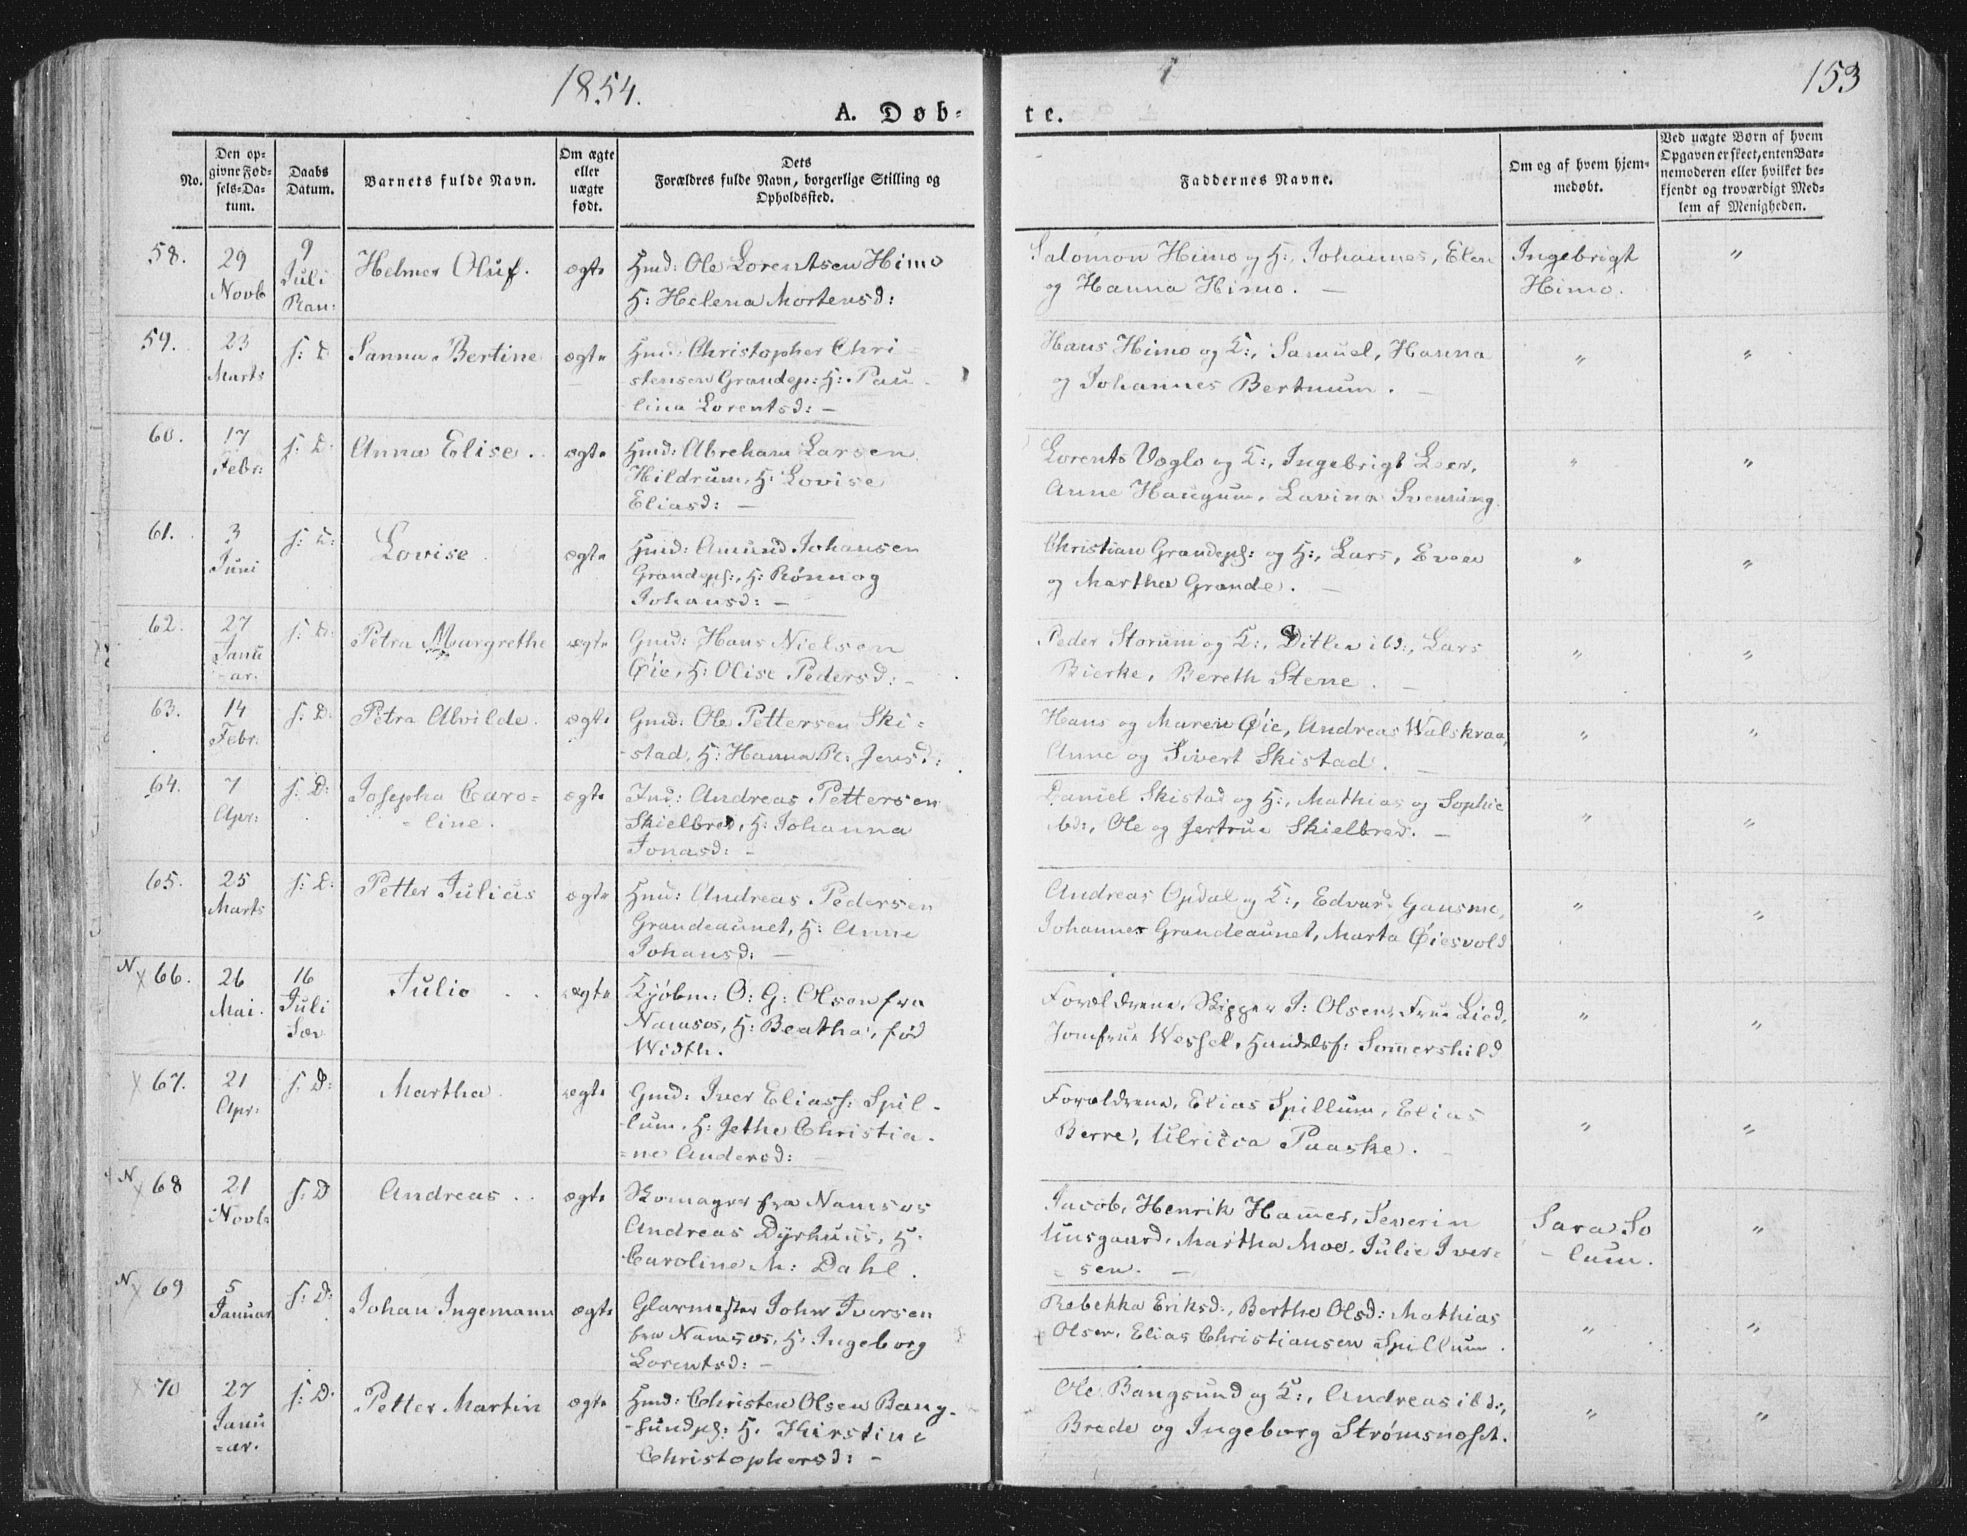 1854.
153
A. Døb-
te.
No.
Den op-
givne Fød-
sels-Da-
tum.
Daabs
Datum.
Barnets fulde Navn.
Om ægte
eller
uægte
født.
Dets
Forældres fulde Navn, borgerlige Stilling og
Opholdssted.
Faddernes Navne.
Om og af hvem hjem-
medøbt.
Ved uægte Børn af hvem
Opgaven er skeet, enten Bar-
nemoderen eller hvilket be-
kjendt og troværdigt Med-
lem af Menigheden.
58.
29
Novb
9
Juli
Ran:
Helmer Oluf.
ægte
Hmd: Ole Lorentsen Himo
H: Helena Mortensd:
Salomon Himo og H:, Johannes, Elen
og Hanna Himo. —
Ingebrigt
Himo.
"
59.
23
Marts
s: D
Sanna Bertine
ægte
Hmd: Christopher Chri-
stensen Grandep: H: Pau-
lina Lorentsd: —
Hans Himo og K:, Samuel, Hanna
og Johannes Bertnum. —
"
"
60.
17
Febr:
s: D:
Anna Elise.
ægte
Hmd: Abreham Larsen
Hildrum, H: Lovise
Eliasd: —
Lorents Voglo og K:, Ingebrigt Leer,
Anne Haugum, Lavina Svenning
"
"
61.
3
Juni
s: D:
Lovise
ægte
Hmd: Amund Johansen
Grandepl:, H: Rønnog
Johansd: —
Christian Grandepl: og H:, Lars, Even
og Martha Grande. —
"
"
62.
27
Janu
-ar.
s: D:
Petra Margrethe
ægte
Gmd: Hans Nielsen
Øie, H: Olise Pedersd: —
Peder Storum og K:, Ditlev ibd:, Lars
Bierke, Bereth Stene. —
"
"
63.
14
Febr:
s: D:
Petra Alvilde.
ægte
Gmd: Ole Pettersen Ski-
-stad, H: Hanna R: Jensd:
Hans og Maren Øie, Andreas Walskraa,
Anne og Sivert Skistad. —
"
"
64.
7
Apr:
s: D:
Josepha Caro-
-line.
ægte
Ind: Andreas Pettersen
Skielbred, H: Johanna
Jonasd: —
Daniel Skistad og H:, Mathias og Sophie
ibd:, Ole og Jertrue Skielbred. —
"
"
65.
25
Marts
s: D:
Petter Julius
ægte
Hmd: Andreas Pedersen
Grandeaunet, H: Anne
Johansd: —
Andreas Opdal og K:, Edvar Gansmo,
Johannes Grandeaunet, Marta Øiesvold
"
"
N x 66.
26
Mai.
16
Juli
Sæv
Julie
ægte
Kjøbm: O: G: Olsen fra
Namsos, H: Beatha, fød
Width.
Forældrene, Skipper J: Olsen, Frue Lied,
Jomfrue Wessel, Handelsf: Sommershild
"
"
x 67.
21
Apr:
s: D:
Martha
ægte
Gmd: Iver Eliass: Spil-
-lum, H: Jethe Christia-
-ne Andersd: —
Forældrene, Elias Spillum, Elias
Berre, Ulricca Paaske. —
"
"
N x 68
21
Novb
s: D
Andreas
ægte
Skomager fra Namsos
Andreas Dyrhuus, H:
Caroline M: Dahl.
Jacob, Henrik Hammer, Severin
Uusgaard, Martha Moe, Julie Iver-
- sen. —
Sara So
- lum.
"
N x 69
5
Januar
s: D:
Johan Ingemann
ægte
Glarmester John Iversen
fra Namsos, H: Ingeborg
Lorentsd: —
Rebekka Eriksd:, Berthe Olsd: Mathias
Olsen, Elias Christiansen Spillum.
"
"
x 70
27
Janu
-ar.
s: D:
Petter Martin
ægte
Hmd: Christen Olsen Bang-
-sundpl: H. Kirstine
Christophersd: —
Ole Bangsund og K:, Andreas ibd:,
Brede og Ingeborg Strømsnoset.
"
"